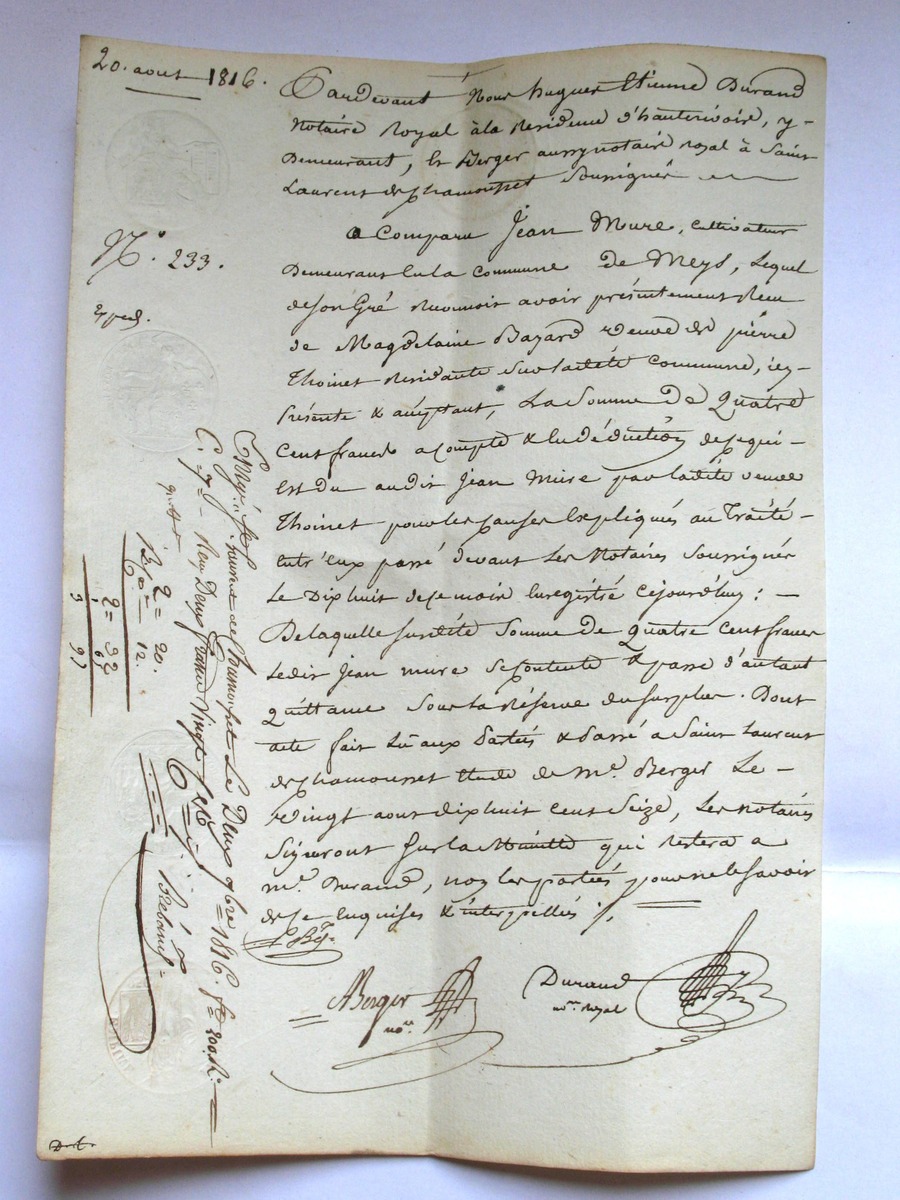 20. aout 1816.
Pardevant Nous hugues Etienne Durand
Notaire Royal à la Residence d'hauterivoire, y-
Demeurant, Et Berger aussy notaire royal à Saint
Laurent de chamousset Soussignés
a Comparu Jean Mure, Cultivateur
Demeurant En la Commune de Meys, Lequel
de Son Gré Reconnoit avoir présentement Reçu
de Magdelaine Bazard veuve de pierre
Thoinet Residante Sur laditte Commune, icy-
Présente & acceptant, La Somme De Quatre
Cent francs a Compte & En Déduction de ce qui -
Est Du audit Jean Mure par laditte veuve
Thoinet pour les Causes Expliqués au Traité-
Entr'Eux passé devant Les Notaires Soussignés
Le Dix huit de ce mois Enregistré Cejourd'huy: -
De laquelle Susditte Somme De Quatre Cent francs
Ledit Jean Mure Se Contente & passe d'autant
Quittance Sous La Réserve du Surplus. Dont
acte fait Lû aux Parties & Passé a Saint Laurent
de Chamousset Etude de Me. Berger Le -
Vingt aout dix huit Cent Seize, Les Notaires
Signeront Sur la Minutte qui Restera a
me. Durand, non les parties pour ne le Savoir
de ce Enquises & interpellés
Berger
nore.
Durand
nore. Royal
No. 233.
Exped.
Enregistré à St. Laurent de Chamousset Le Deux 7bre 1816. fo 200. Ro.
Reçu Deux francs Vingt Centimes
2 = 20.
12.
2 = 32
65
3 97